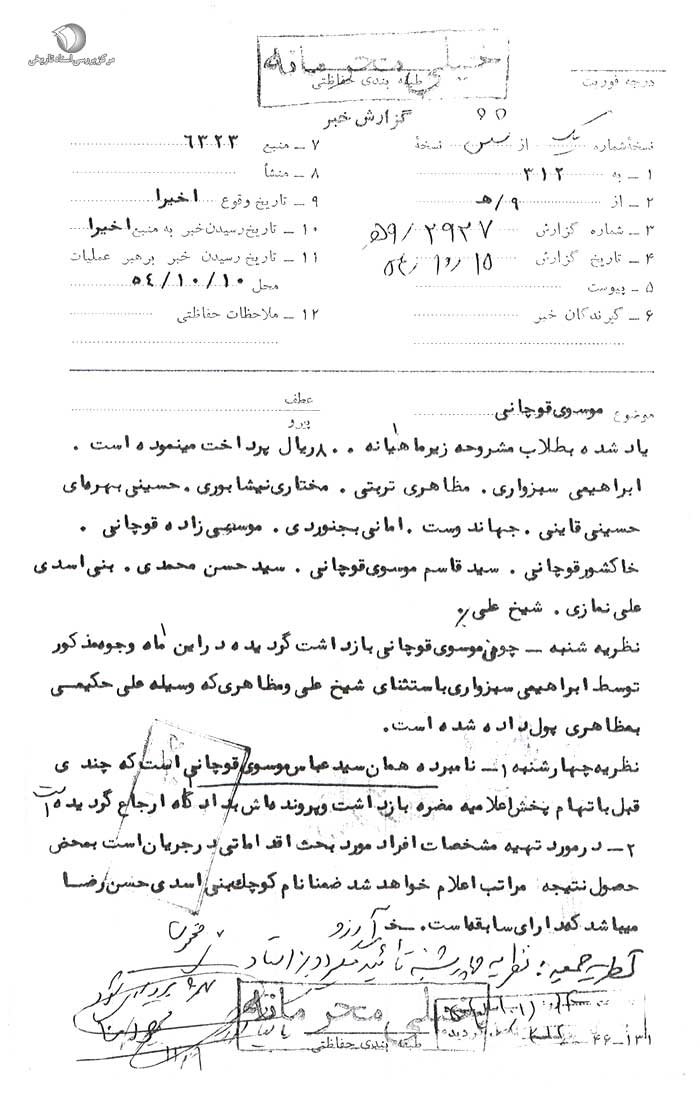 مرکز بررسی اسناد تاریخی
خیلی محرمانه
طبقه بندی حفاظتی
درجه فوریت
گزارش خبر
نسخهٔ شماره یک از نسخهٔ
۱ – به ۳۱۲
۲ – از ۹/هـ
۳ – شماره گزارش ۲۹۲۷/۹هـ
۴ – تاریخ گزارش
۵ – پیوست
۶ – گیرندگان خبر
۷ – منبع ۶۳۲۳
۸ – منشأ
۹ – تاریخ وقوع اخیرا
۱۰ – تاریخ رسیدن خبر به منبع اخیرا
۱۱ – تاریخ رسیدن خبر برهبر عملیات
محل ۵٤/۱۰/۱۰
۱۲ – ملاحظات حفاظتی
موضوع موسوی قوچانی
عطف
پیرو
یاد شده بطلاب مشروحه زیر ماهیانه ۸۰۰ ریال پرداخت مینموده است .
ابراهیمی سبزواری . مظاهری تربتی . مختاری نیشابوری . حسینی بهرمای
حسینی قاینی . جهاندوست . امانی بجنوردی . موسوی زاده قوچانی .
خاکشور قوچانی . سید قاسم موسوی قوچانی . سید حسن محمدی . بنی اسدی
علی نمازی . شیخ علی
نظریه شنبه – چون موسوی قوچانی بازداشت گردیده در این ماه وجوه مذکور
توسط ابراهیمی سبزواری باستثنای شیخ علی ومظاهری که وسیله علی حکیمی
بمظاهری پول داده شده است.
نظریه چهارشنبه ۱– نامبرده همان سید عباس موسوی قوچانی است که چندی
قبل باتهام پخش اعلامیه مضره بازداشت وپرونده اش بدادگاه ارجاع گردیده است
۲– در مورد تهیه مشخصات افراد مورد بحث اقداماتی در جریان است بمحض
حصول نتیجه مراتب اعلام خواهد شد ضمنا نام کوچک بنی اسدی حسن رضا
میباشد که دارای سابقه است. – خ آرزو
نظریه جمعه : نظریه چهارشنبه تأئید میگردد
خیلی محرمانه
طبقه بندی حفاظتی